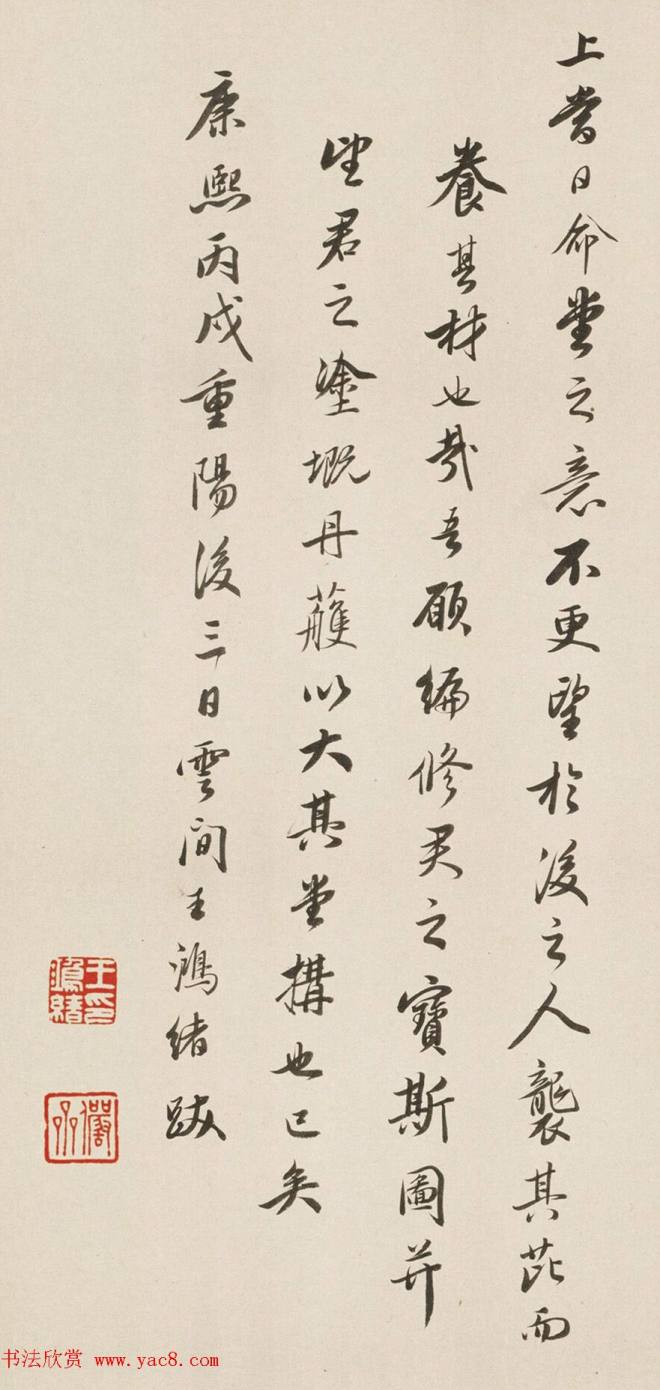 上當日命堂之意不更望於後之人襲其芘而
養其材也哉吾願編修君之寶斯圖并
望君之塗塈丹雘以大其堂構也已矣
康熙丙戌重陽後三日雲間王鴻緒跋
王鴻緒印
儼齋
书法欣赏 www.yac8.com